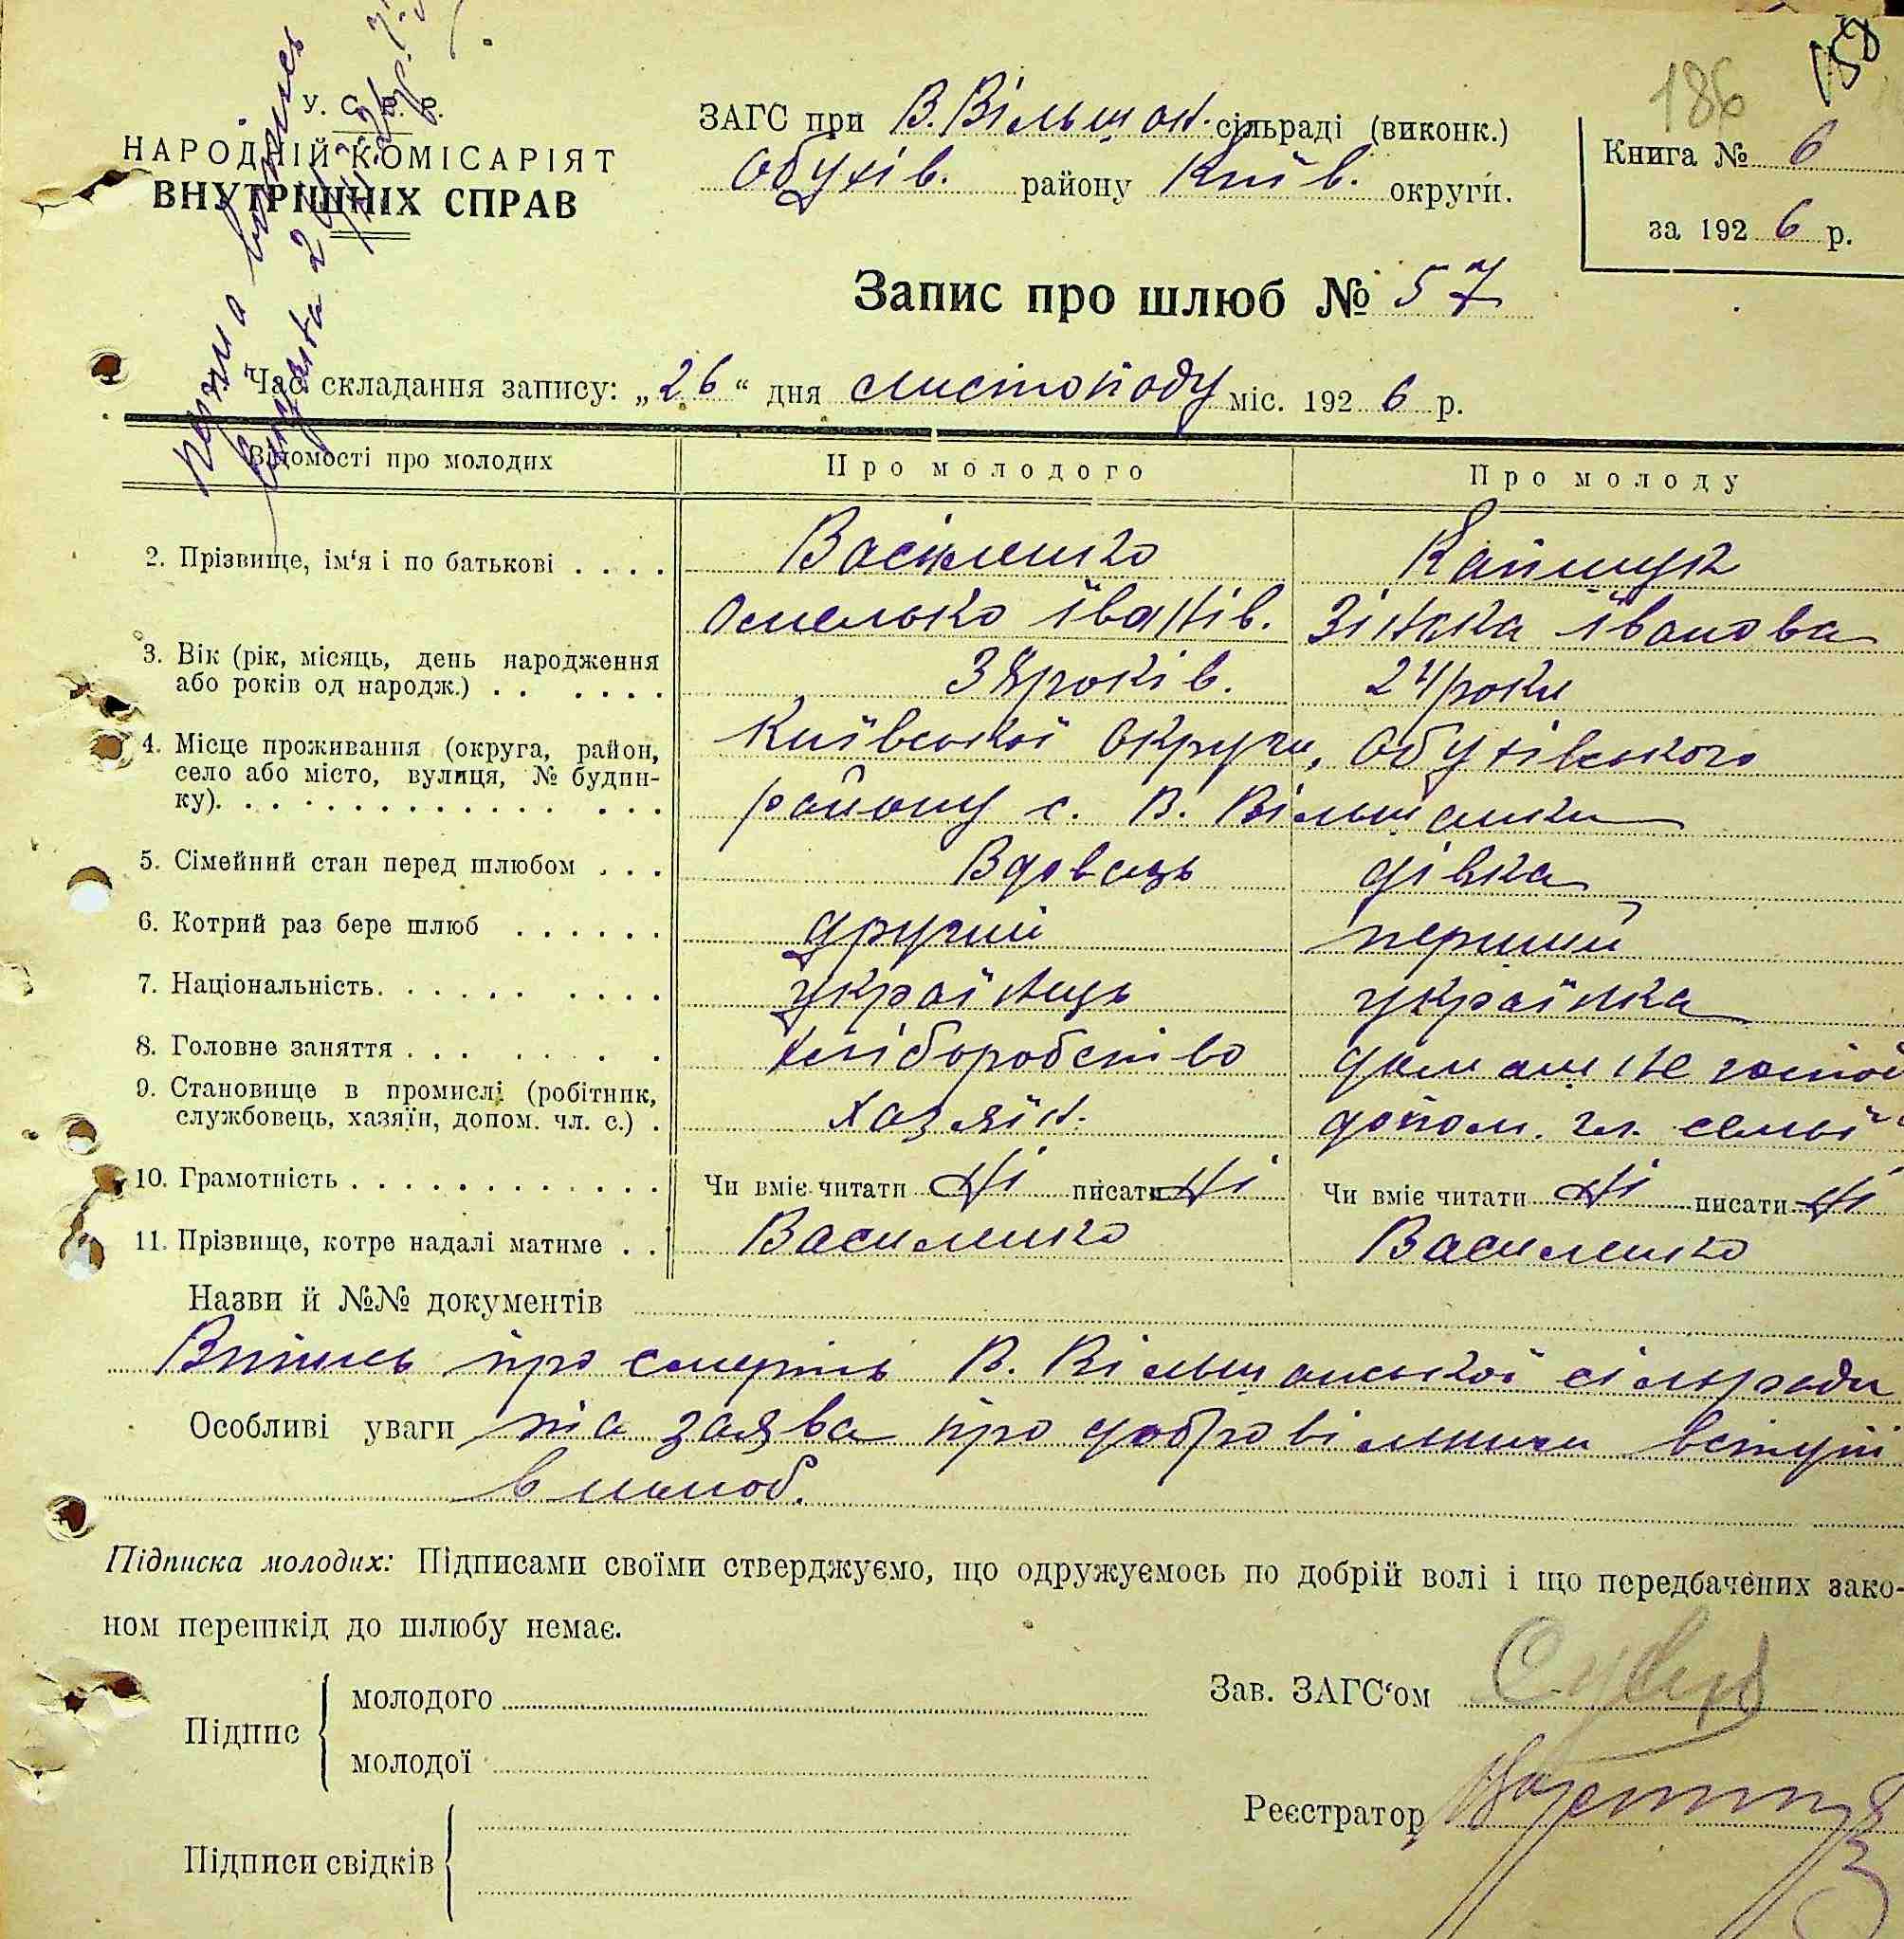 У. С. Р. Р.
НАРОДНІЙ КОМІСАРІЯТ
ВНУТРІШНІХ СПРАВ
ЗАГС при В. Вільшан. сільраді (виконк.)
Обухів. району Київ. округи.
186
158
Книга № 6
за 1926 р.
Запис про шлюб № 57
Час складання запису: „26“ дня листопаду міс. 1926 р.
Відомості про молодих
Про молодого
Про молоду
2. Прізвище, ім‘я і по батькові . . . .
Василенко
Омелько Іванів.
Зінька Іванова
3. Вік (рік, місяць, день народження
або років од народж.) . . . . . .
38 років.
24 роки
4. Місце проживання (округа, район,
село або місто, вулиця, № будин-
ку). . . . . . . . . . . . . . .
Київської округи, Обухівського
району с. В. Вільшанки
5. Сімейний стан перед шлюбом . . .
Вдовець
дівка
6. Котрий раз бере шлюб . . . . . .
другий
перший
7. Національність. . . . . . . . . .
українець
українка
8. Головне заняття . . . . . . . .
хліборобство
домашнє господ
9. Становище в промислі (робітник,
службовець, хазяїн, допом. чл. с.) .
хазяїн.
допом. чл. семьї
10. Грамотність . . . . . . . . . . . .
Чи вміє читати Ні писати Ні
Чи вміє читати Ні писати Ні
11. Прізвище, котре надалі матиме . .
Василенко
Василенко
Назви й №№ документів
Випись про смерть В. Вільшанської сільради
Особливі уваги та заява про добровільний вступ
в шлюб.
Підписка молодих: Підписами своїми стверджуємо, що одружуємось по добрій волі і що передбачених зако-
ном перешкід до шлюбу немає.
Підпис
молодого
молодої
Зав. ЗАГС‘ом
Реєстратор
Підписи свідків